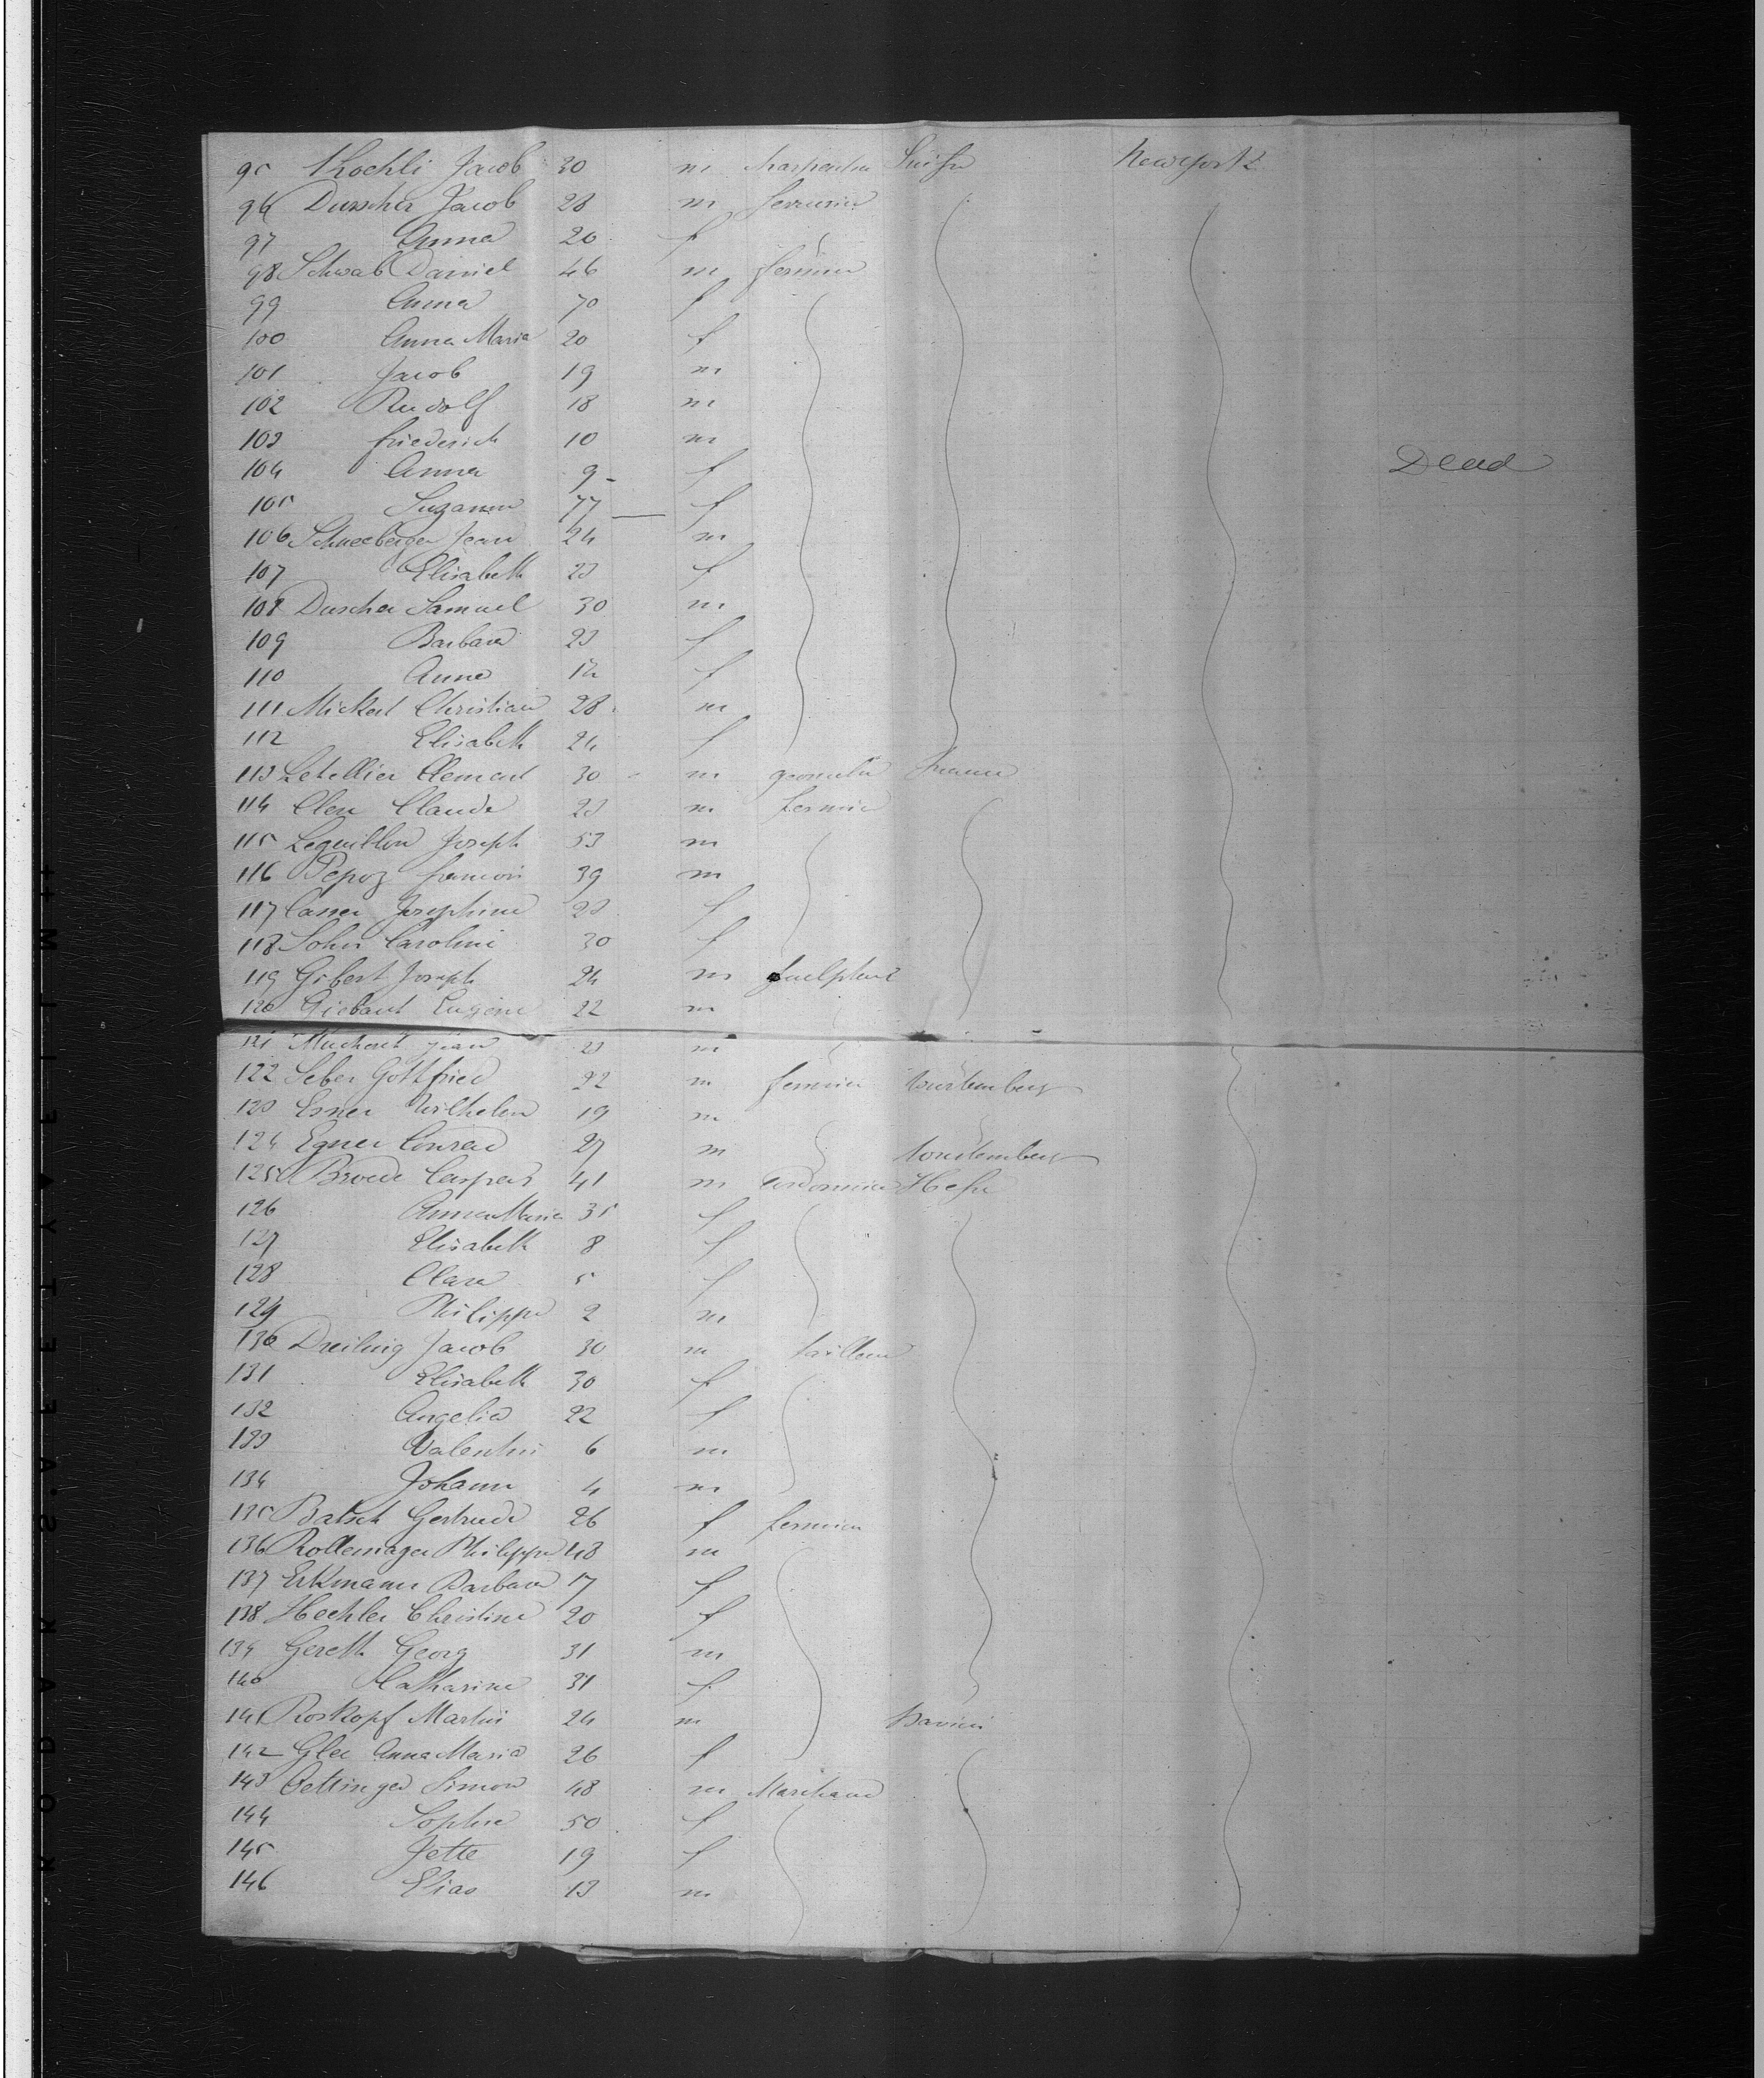 95 Kochli Jacob 30 m charpentier Suisse Newyork
96 Durscher Jacob 28 m serrurier
97 Anna 20 f
98 Schwab Daniel 46 m fermier
99 Anna 70 f
100 Anna Maria 20 f
101 Jacob 19 m
102 Rudolf 18 m
103 friederich 10 m
104 Anna 9 f Dead
105 Suzanne 77 f
106 Schneeberger Jean 24 m
107 Elisabeth 23 f
108 Duscher Samuel 30 m
109 Barbara 23 f
110 Anna f
111 Mickel Christian 28 m
112 Elisabeth 24 f
113 Letellier Clement 30 m geometre france
114 Claude 23 m fermier
115 Leguillon Joseph 53 m
116 Pepoz francois 39 m
117 Josephine 23 f
118 Sohn Caroline 30 f
119 Gibert Joseph 24 m sculpteur
120 Giebaut Eugene 22 m
121 Jean 23 m
122 Seber Gottfried 22 m fermier Wurtemberg
123 Esner Wilhelm 19 m
124 Egner Conrad 27 m Wurtemberg
125 Broede Caspar 41 m cordonnier Hesse
126 Anna Maria 35 f
127 Elisabeth 8 f
128 Clara 5 f
129 Philippe 2 m
130 Dreiling Jacob 30 m tailleur
131 Elisabeth 30 f
132 Angelia 22 f
133 Valentin 6 m
134 Johann 4 m
135 Batsch Gertrude 26 f fermier
136 Rollemager Philippe 48 m
137 Erkmann Barbara 17 f
138 Hechler Christine 20 f
139 Gereth Georg 31 m
140 Catharine 31 f
141 Roskopf Martin 24 m Baviere
142 Glee Anna Maria 26 f
143 Oettinger Simon 48 m Marchand
144 Sophie 50 f
145 Jette 19 f
146 Elias 13 m